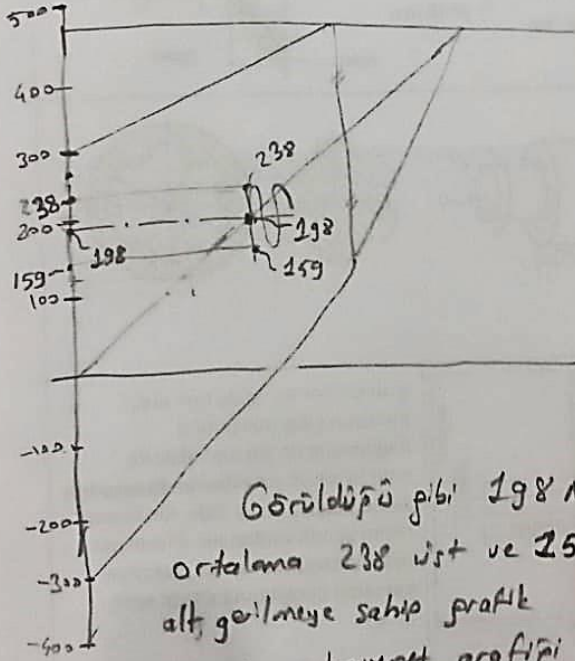 500
400
300
238
238
200
198
198
159
159
100
-100
-200
-300
-400
Görüldüğü gibi 198
ortalama 238 üst ve
alt, gerilmeye sahip grafik
grafiği